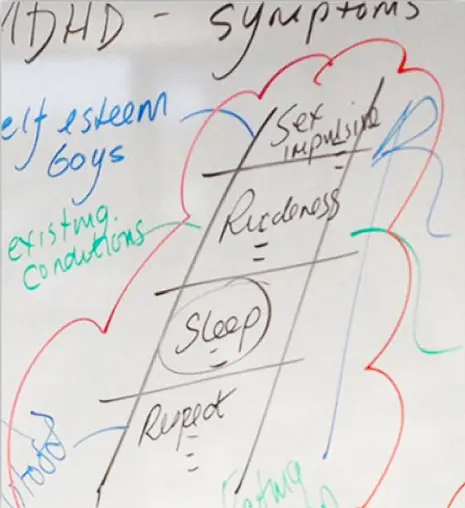 ADHD - Symptoms
elf esteem
Boys
Sex
impulsive
existing.
conditions
Rudeness
Sleep
Respect
Eating